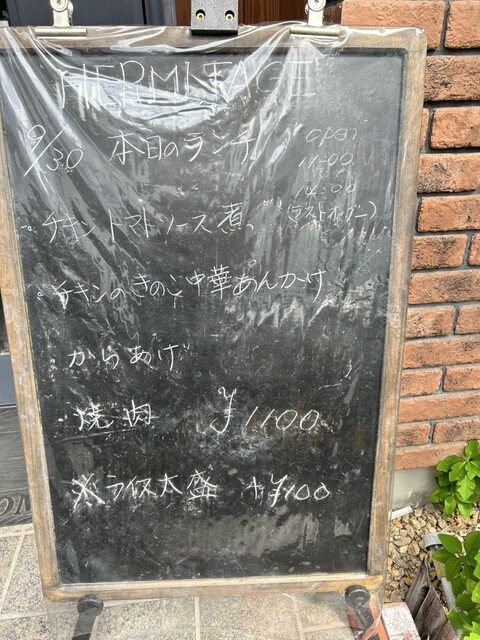 HERMITAGE
9/30 本日のランチ
open
11:00
14:00
(ラストオーダー)
・チキントマトソース煮
・チキンのきのこ中華あんかけ
・からあげ
・焼肉 ¥1100
※ライス大盛 +¥100